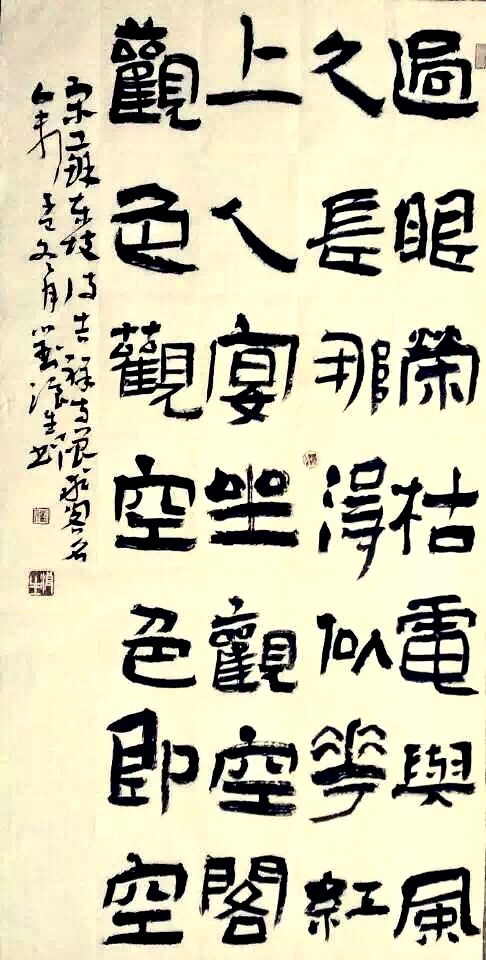 過眼榮枯電與風
久長那得似華紅
上人宴坐觀空閣
觀色觀空色即空
宋蘇東坡詩吉祥寺僧求閣名
冬月